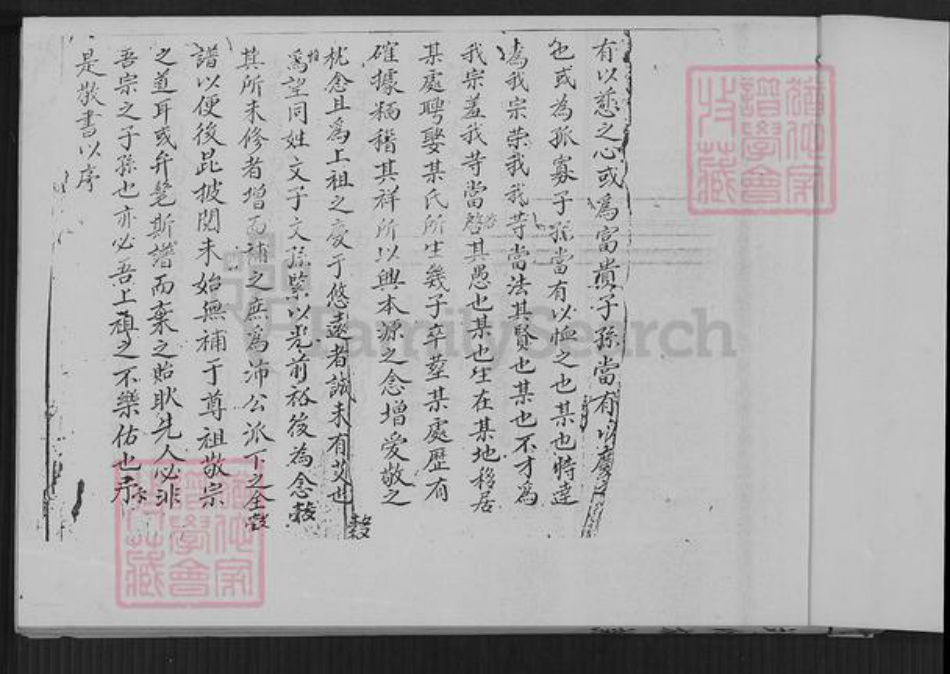 有以慈之心或為富貴子孫當有以慶
也或為孤寡子孫當有以恤之也某也特達
為我宗榮我我等當法其賢也某也不才為
我宗羞我等當啓其愚也某也生在某地移居
某處聘娶某氏所生幾子卒塟某處歷有
確據稱稽其祥所以興本源之念增愛敬之
枕念且為上祖之慶于悠遠者誠未有艾也
為望同姓文子文孫緊以光前裕後為念
其所未修者增而補之庶為沛公派下之全
譜以便後昆披閱未始無補于尊祖敬宗
之道耳或弁髦斯譜而棄之貽耻先人必非
吾宗之子孫也亦必吾上祖之不樂佑也予
是敬書以序
FamilySearch